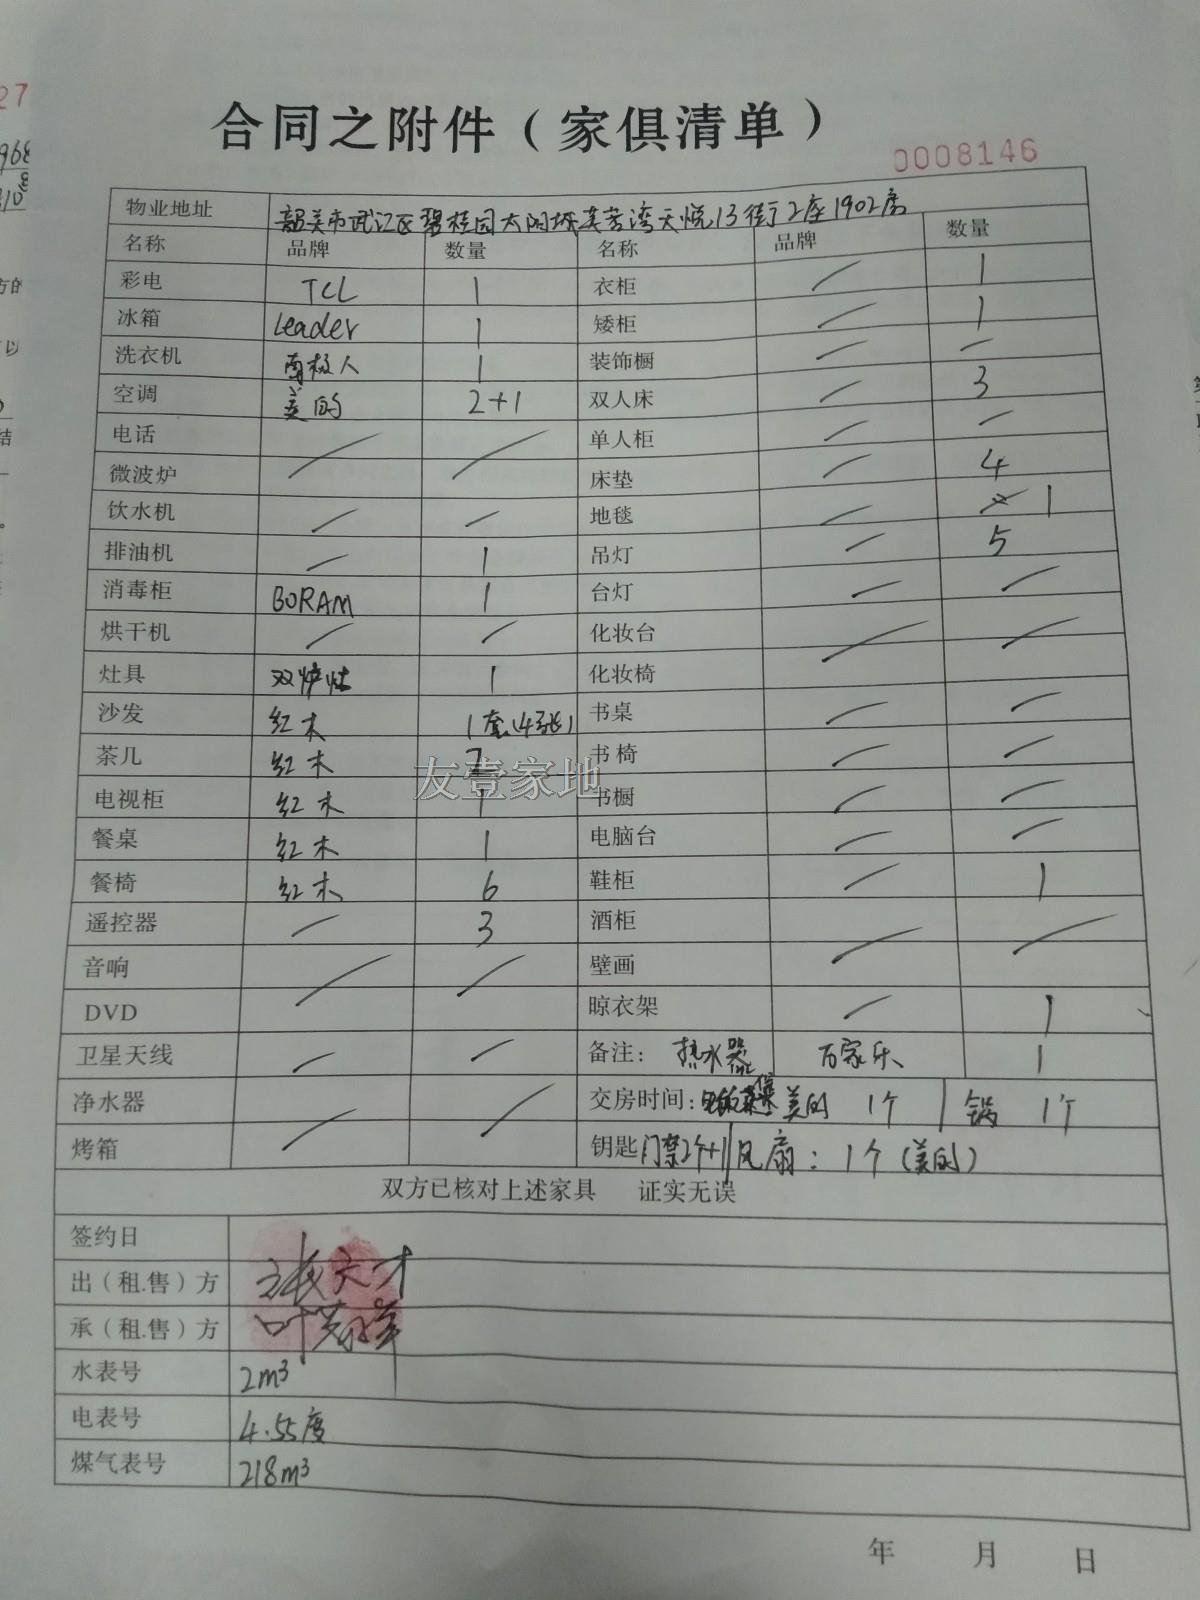 合同之附件（家俱清单）
0008146
物业地址 韶关市武江区碧桂园太阳城芙蓉湾天悦13街2座1902房
名称 品牌 数量 名称 品牌 数量
彩电 TCL 1 衣柜 / 1
冰箱 Leader 1 矮柜 / 1
洗衣机 南极人 1 装饰橱 / /
空调 美的 2+1 双人床 / 3
电话 / / 单人柜 / /
微波炉 床垫 / 4
饮水机 / / 地毯 / 1
排油机 / 1 吊灯 / 5
消毒柜 BORAM 1 台灯 / /
烘干机 / / 化妆台 / /
灶具 双炉灶 1 化妆椅
沙发 红木 1套(4张) 书桌 / /
茶几 红木 书椅 / /
电视柜 红木 1 书橱 / /
餐桌 红木 1 电脑台 / /
餐椅 红木 6 鞋柜 / 1
遥控器 / 3 酒柜 / /
音响 / / 壁画
DVD 晾衣架 / 1
卫星天线 / / 备注：热水器 万家乐 1
净水器 / / 交房时间： 美的 1个 锅 1个
烤箱 钥匙 门禁2个+1 风扇：1个(美的)
双方已核对上述家具 证实无误
签约日
出（租.售）方
承（租.售）方
水表号 2m³
电表号 4.55度
煤气表号 218m³
年 月 日
友壹家地